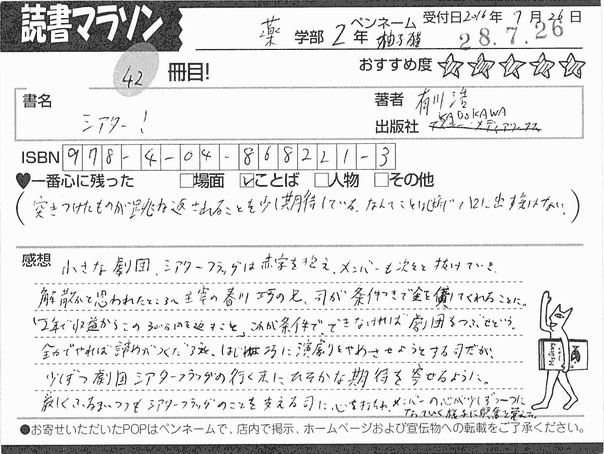 読書マラソン
薬 学部 2年 ペンネーム 柚子雅 受付日 2016年 7月 26日
28.7.26
42 冊目!
おすすめ度 ☆☆☆☆☆
書名 シアター!
著者 有川 浩
出版社 KADOKAWA メディアワークス
ISBN 978-4-04-868221-3
♥一番心に残った □場面 ☑ことば □人物 □その他
(突きつけたものが跳ね返されることを少し期待している、なんてことは断じて口に出すわけない。)
感想 小さな劇団、シアターフラッグは赤字を抱え、メンバーも次々と抜けていき、
解散かと思われたところへ主宰の春川 巧の兄、司が条件つきで金を貸してくれることに。
「2年で収益からこの300万円を返すこと」これが条件で、できなければ劇団をつぶせという。
全力でやれば諦めがつくだろうと、はじめは巧に演劇をやめさせようとする司だが、
少しずつ劇団シアターフラッグの行く末にひそかな期待を寄せるように。
厳しくふるまいつつもシアターフラッグのことを支える司に心を打たれ、メンバーの心が少しずつ一つに
なっていく様子に興奮を覚えた。
●お寄せいただいたPOPはペンネームで、店内で掲示、ホームページおよび宣伝物への転載をご了承ください。